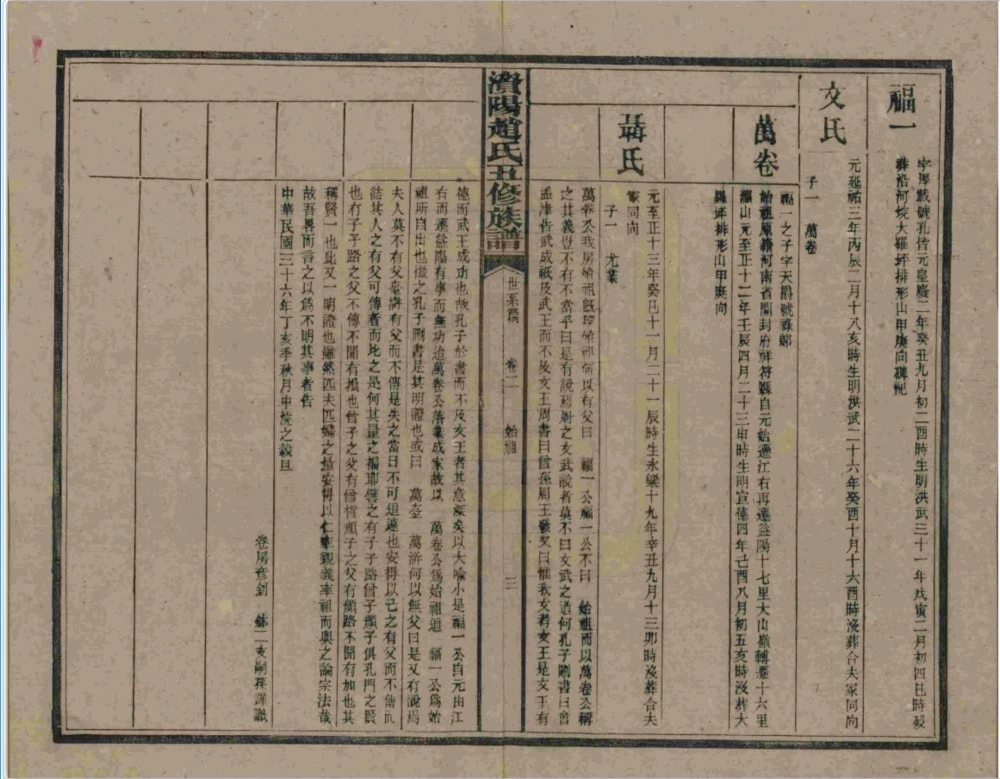 福一
字 號 元皇慶二年癸丑九月初二酉時生明洪武三十一年戊寅二月初四巳時歿
葬 河 大羅坪排形山甲庚向碑記
文氏
元延祐三年丙辰二月十八亥時生明洪武二十六年癸酉十月十六酉時沒葬合夫冢同向
子一 萬卷
萬卷
福一之子字天爵號
始祖原籍河南省開封府祥符縣自元始遷江右再遷益陽十七里大山嶺轉遷十六里
福山元至正十二年壬辰四月二十三申時生明宣德四年己酉八月初五亥時沒葬大
羅坪排形山甲庚向
聶氏
元至正十三年癸巳十一月二十一辰時生永樂十九年辛丑九月十三卯時沒葬合夫
冢同向
子一 允業
萬卷公我房始祖既 始祖何以有父曰 福一公福一公不曰 始祖而以萬卷公稱
之其義豈不有不當乎曰是有說焉 之文武說者莫不曰文武之道何孔子刪書曰會
孟津告武成祇及武王而不及文王周書曰曾孫周王發又曰惟我文考文王是文王有
濟陽趙氏五修族譜
世系 卷二 始祖 三
德而武王成功也故孔子於書而不及文王者其意深矣以大喻小是福一公自元由江
右而遷益陽有事而無功迨萬卷公落業成家故以 萬卷公為始祖追 福一公為始
祖所自出也徵之孔子刪書是其明證也或曰 萬 萬 何以無父曰是又有說焉
夫人莫不有父 有父而不傳是失之當日不可追遠也安得以己之有父而不傳而
詰其人之有父可傳者而比之是何其量之褊耶 之有子子路曾子顏子俱孔門之賢
也有子子路之父不傳不聞有損也曾子之父有曾晳顏子之父有顏路不聞有加也其
稱賢一也此又一明證也雖然匹夫匹婦之量安得以仁率親義率祖而與之論宗法哉
故吾畧而言之以為不明其事者告
中華民國三十六年丁亥季秋月中浣之穀旦
卷房 二支嗣孫謹識